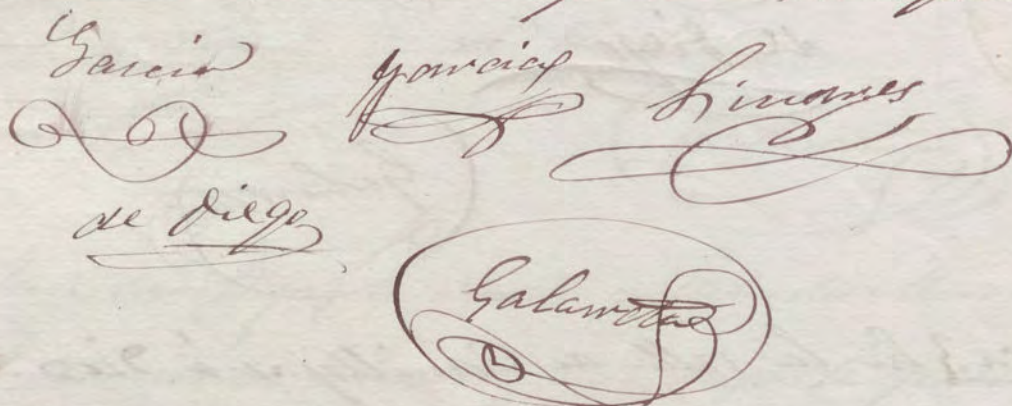 Garcia Garcia Linares
de Diego
Galarreta